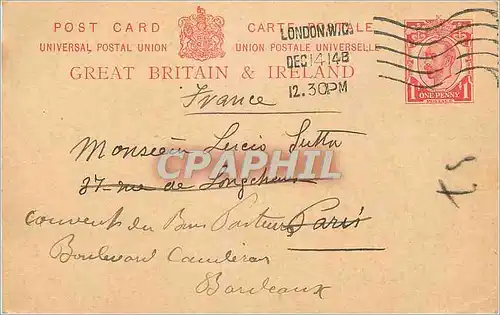 POST CARD CARTE POSTALE
UNIVERSAL POSTAL UNION UNION POSTALE UNIVERSELLE
GREAT BRITAIN & IRELAND
LONDON.W.C.
DEC 14 14 8
12.30PM
ONE PENNY
1 1
France
Monsieur Lucio Sutta
37 rue de Longchamp
CPARPHIL
couvent du Bon Pasteur Paris
Boulevard Caudéran
Bordeaux